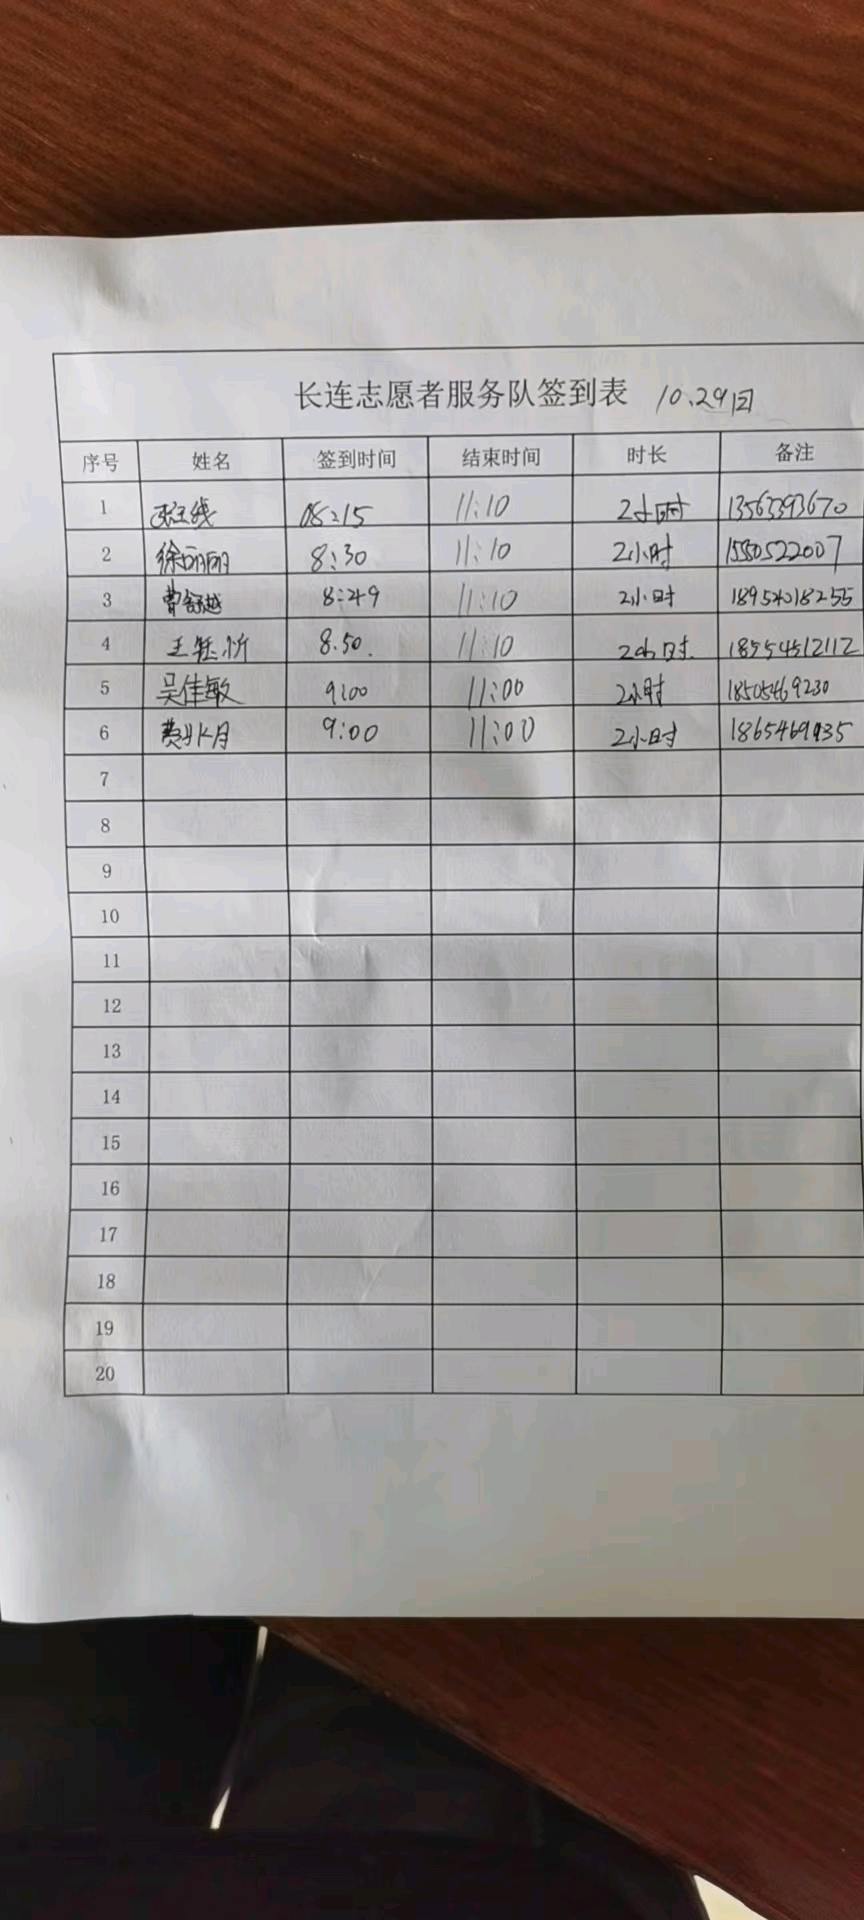 长连志愿者服务队签到表 10.29日
序号 姓名 签到时间 结束时间 时长 备注
1 08:15 11:10 2小时 13563393670
2 徐丽丽 8:30 11:10 2小时 15505222007
3 曹舒越 8:49 11:10 2小时 18954018255
4 王钰忻 8.50. 11:10 2小时. 18554512112
5 吴佳敏 9:00 11:00 2小时 18505469230
6 9:00 11:00 2小时
7
8
9
10
11
12
13
14
15
16
17
18
19
20